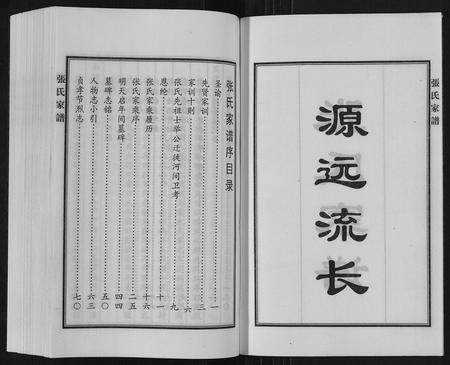 源远流长
張氏家譜
张氏家谱序目录
圣谕………一
先贤家训………三
家训十则………六
张氏先祖士举公迁徙河间卫考………九
恩纶………一一
张氏家乘履历………一六
张氏家乘序………二五
明天启年间墓碑………四四
墓碑志铭………五〇
人物志小引………六三
贞孝节烈志………七〇
張氏家譜